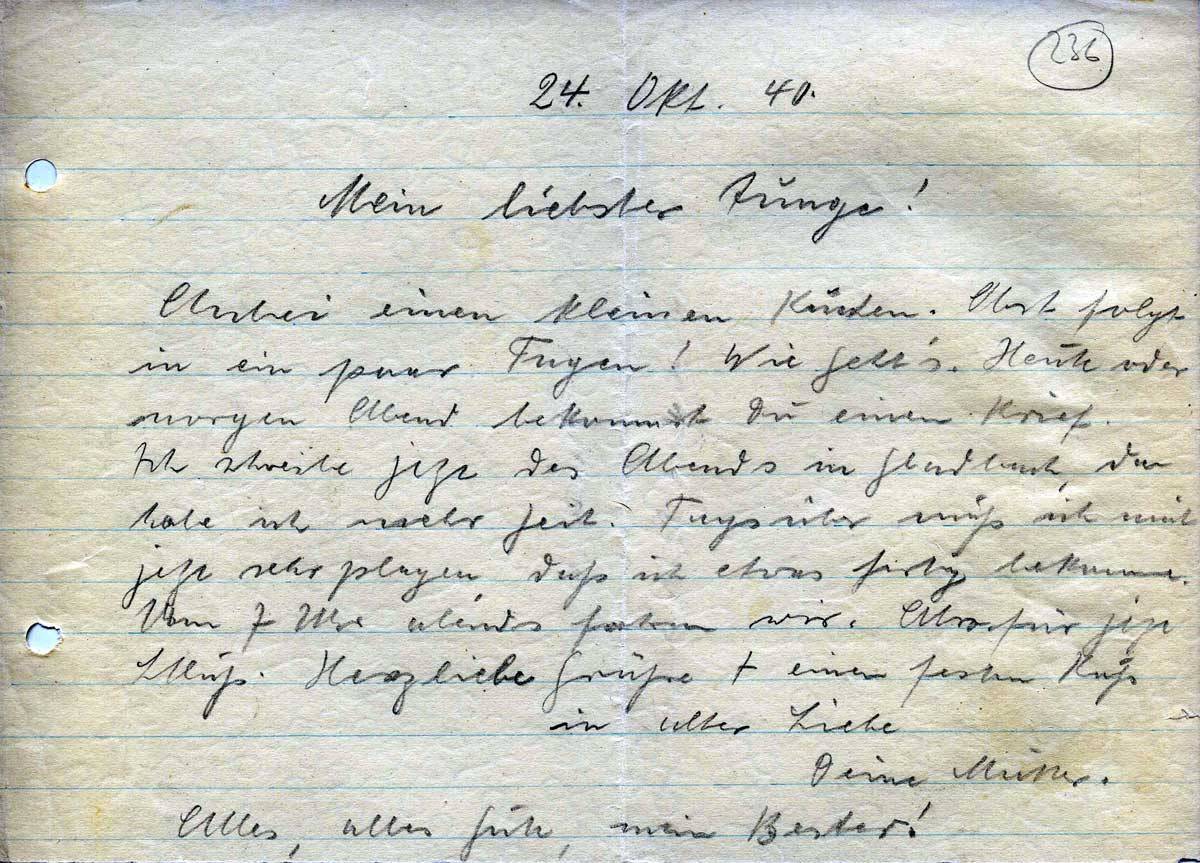 236
24. Okt. 40.
Mein liebster Junge!
Anbei einen kleinen Kuchen. Obst folgt
in ein paar Tagen! Wie geht's. Heute oder
morgen Abend bekommst Du einen Brief.
Ich schreibe jetzt des Abends in Gladbach, da
habe ich mehr Zeit. Tagsüber muß ich mich
jetzt sehr plagen, daß ich etwas fertig bekomme.
Um 7 Uhr abends fahren wir. Also für jetzt
Schluß. Herzliche Grüße + einen festen Kuß
in alter Liebe
Deine Mutter.
Alles, alles Gute, mein Bester!